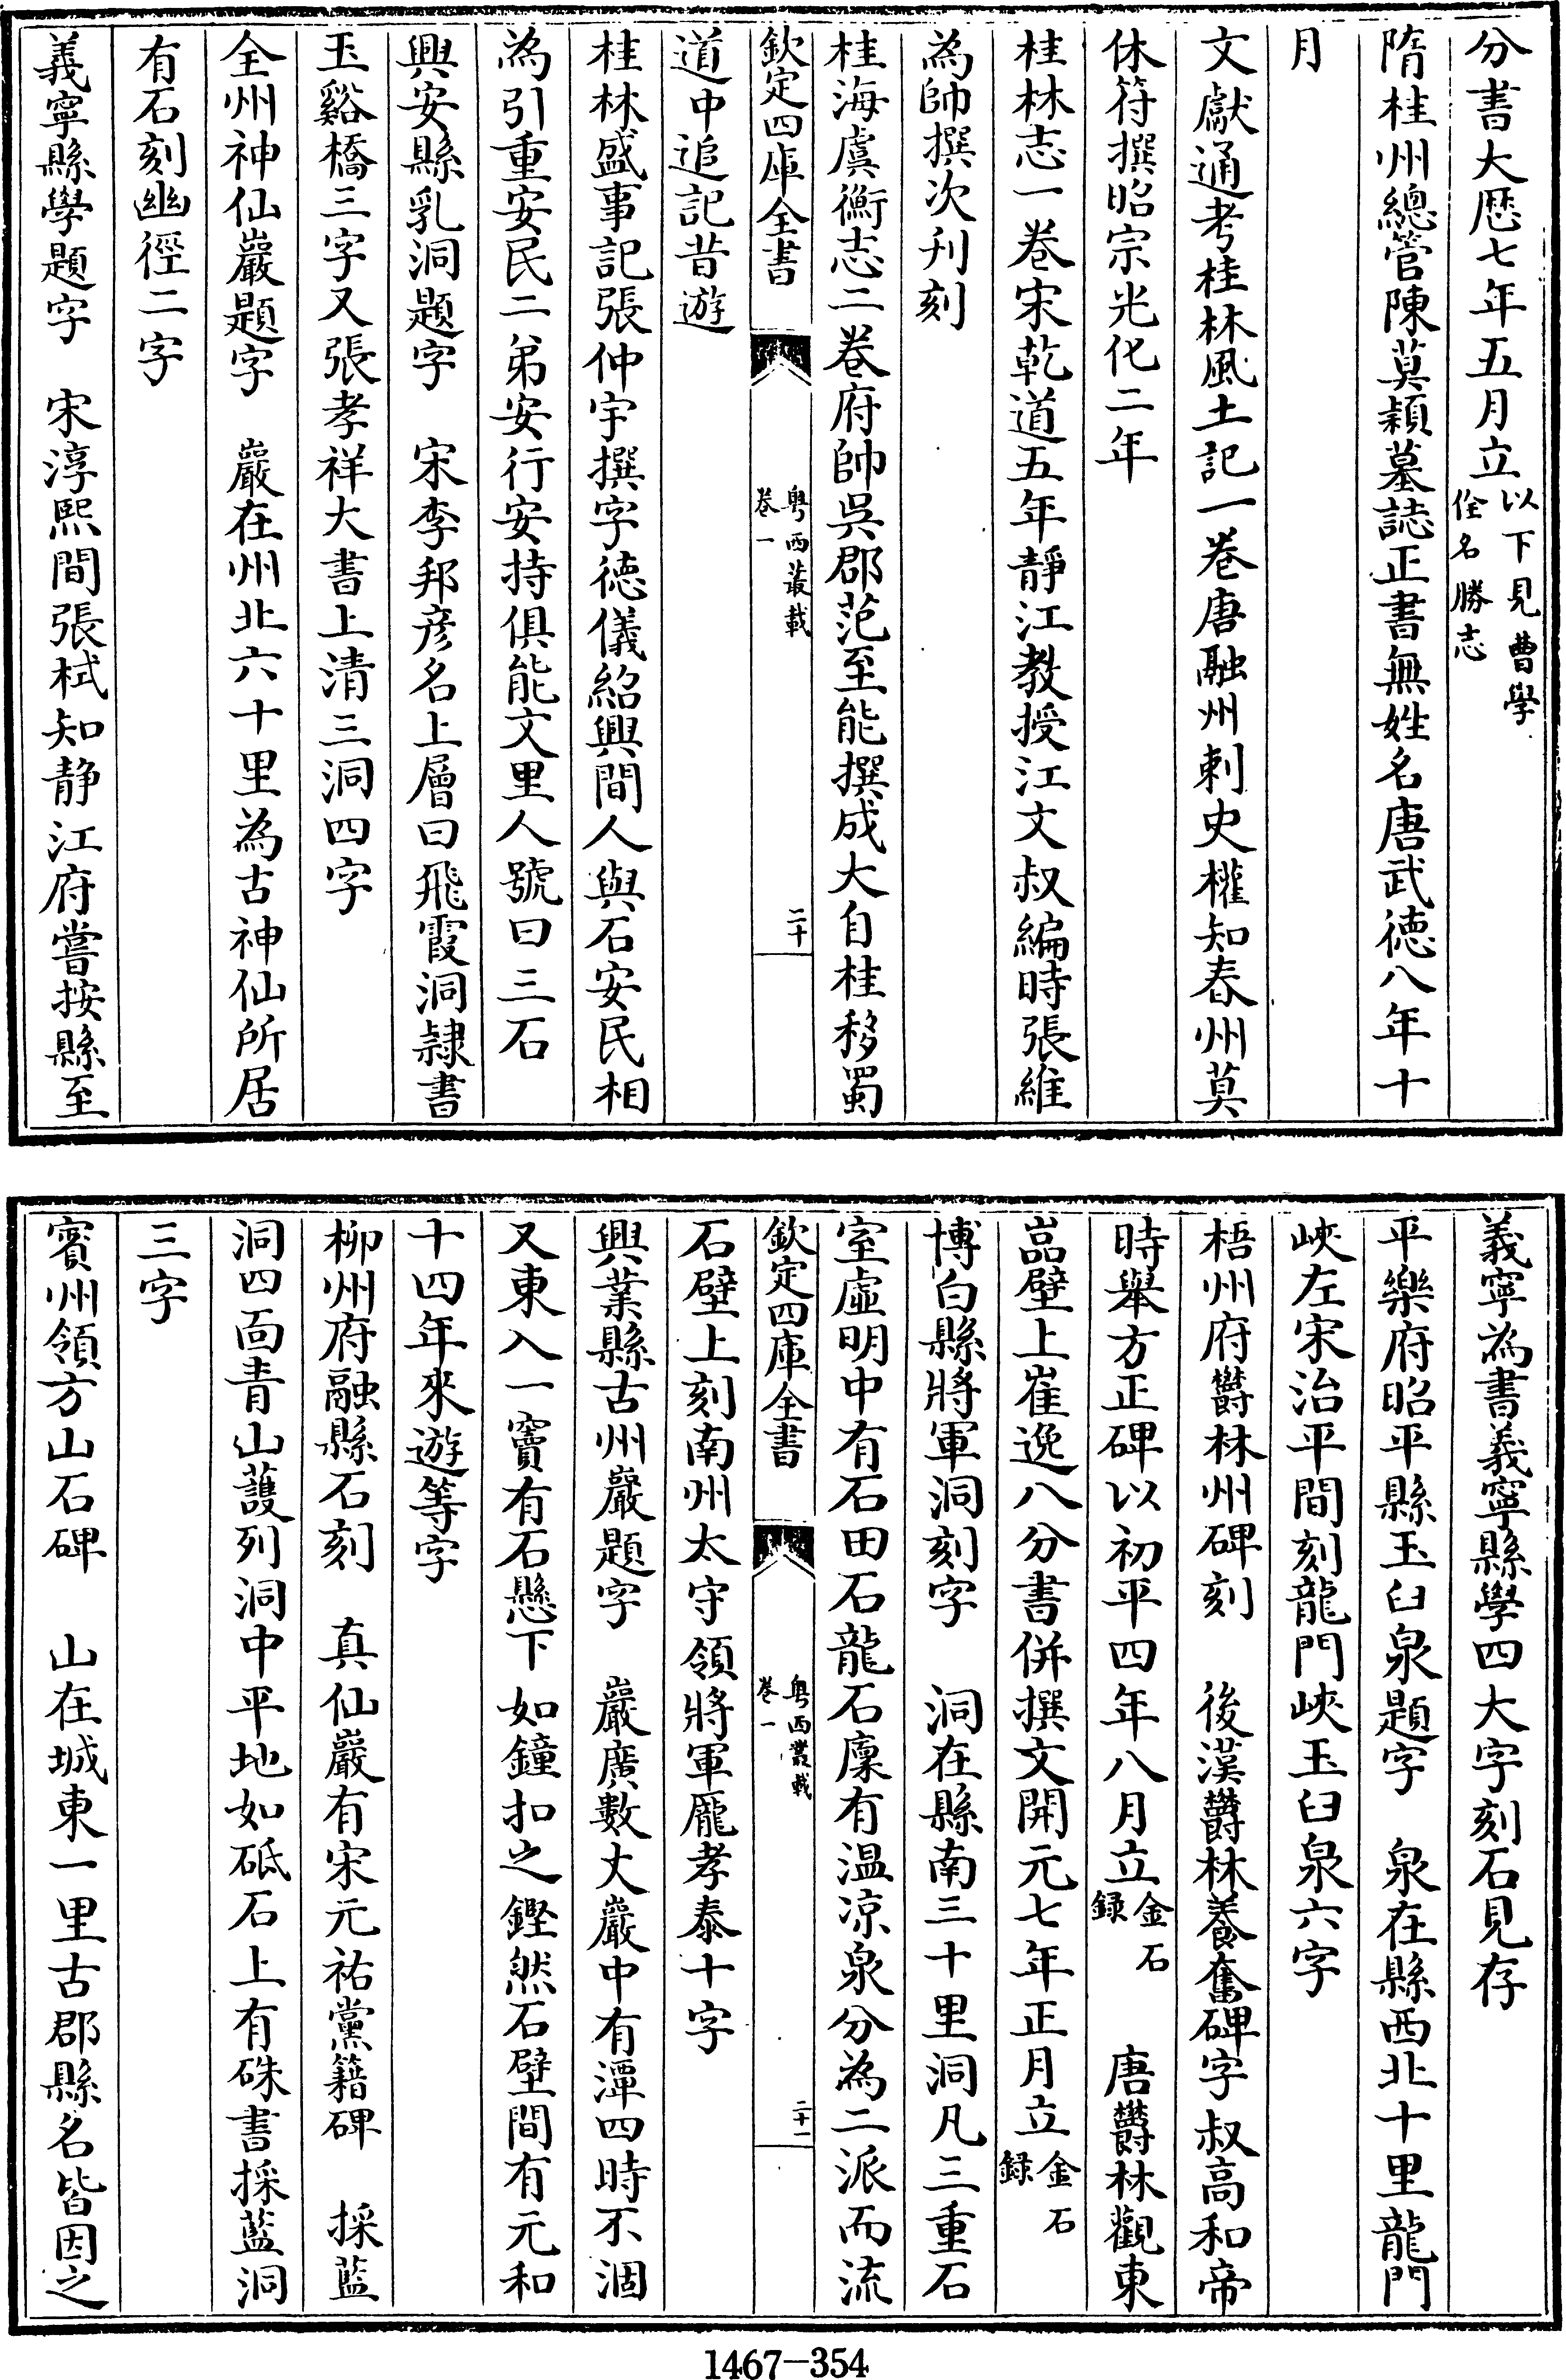 分書大厯七年五月立以下見曹學
佺名勝志
隋桂州總管陳莫穎墓誌正書無姓名唐武徳八年十
月
文獻通考桂林風土記一巻唐融州刺史權知春州莫
休符撰昭宗光化二年
桂林志一巻宋乾道五年靜江教授江文叔編時張維
為帥撰次刋刻
桂海虞衡志二巻府帥吳郡范至能撰成大自桂移蜀
欽定四庫全書
粤西叢載
巻一
二十
道中追記昔遊
桂林盛事記張仲宇撰字徳儀紹興間人與石安民相
為引重安民二弟安行安持俱能文里人號曰三石
興安縣乳洞題字 宋李邦彦名上層曰飛霞洞隷書
玉谿橋三字又張孝祥大書上清三洞四字
全州神仙巖題字 巖在州北六十里為古神仙所居
有石刻幽徑二字
義寧縣學題字 宋淳熙間張栻知静江府嘗按縣至
義寧為書義寧縣學四大字刻石見存
平樂府昭平縣玉臼泉題字 泉在縣西北十里龍門
峽左宋治平間刻龍門峽玉臼泉六字
梧州府欝林州碑刻 後漢欝林養奮碑字叔高和帝
時舉方正碑以初平四年八月立金石
録 唐欝林觀東
嵓壁上崔逸八分書併撰文開元七年正月立金石
録
博白縣將軍洞刻字 洞在縣南三十里洞凡三重石
室虚明中有石田石龍石廩有温凉泉分為二派而流
欽定四庫全書
粤西叢載
巻一
二十一
石壁上刻南州太守領將軍龎孝泰十字
興業縣古州巖題字 巖廣數丈巖中有潭四時不涸
又東入一竇有石懸下如鐘扣之鏗然石壁間有元和
十四年來遊等字
柳州府融縣石刻 真仙巖有宋元祐黨籍碑 採藍
洞四面青山護列洞中平地如砥石上有硃書採藍洞
三字
賓州領方山石碑 山在城東一里古郡縣名皆因之
1467-354